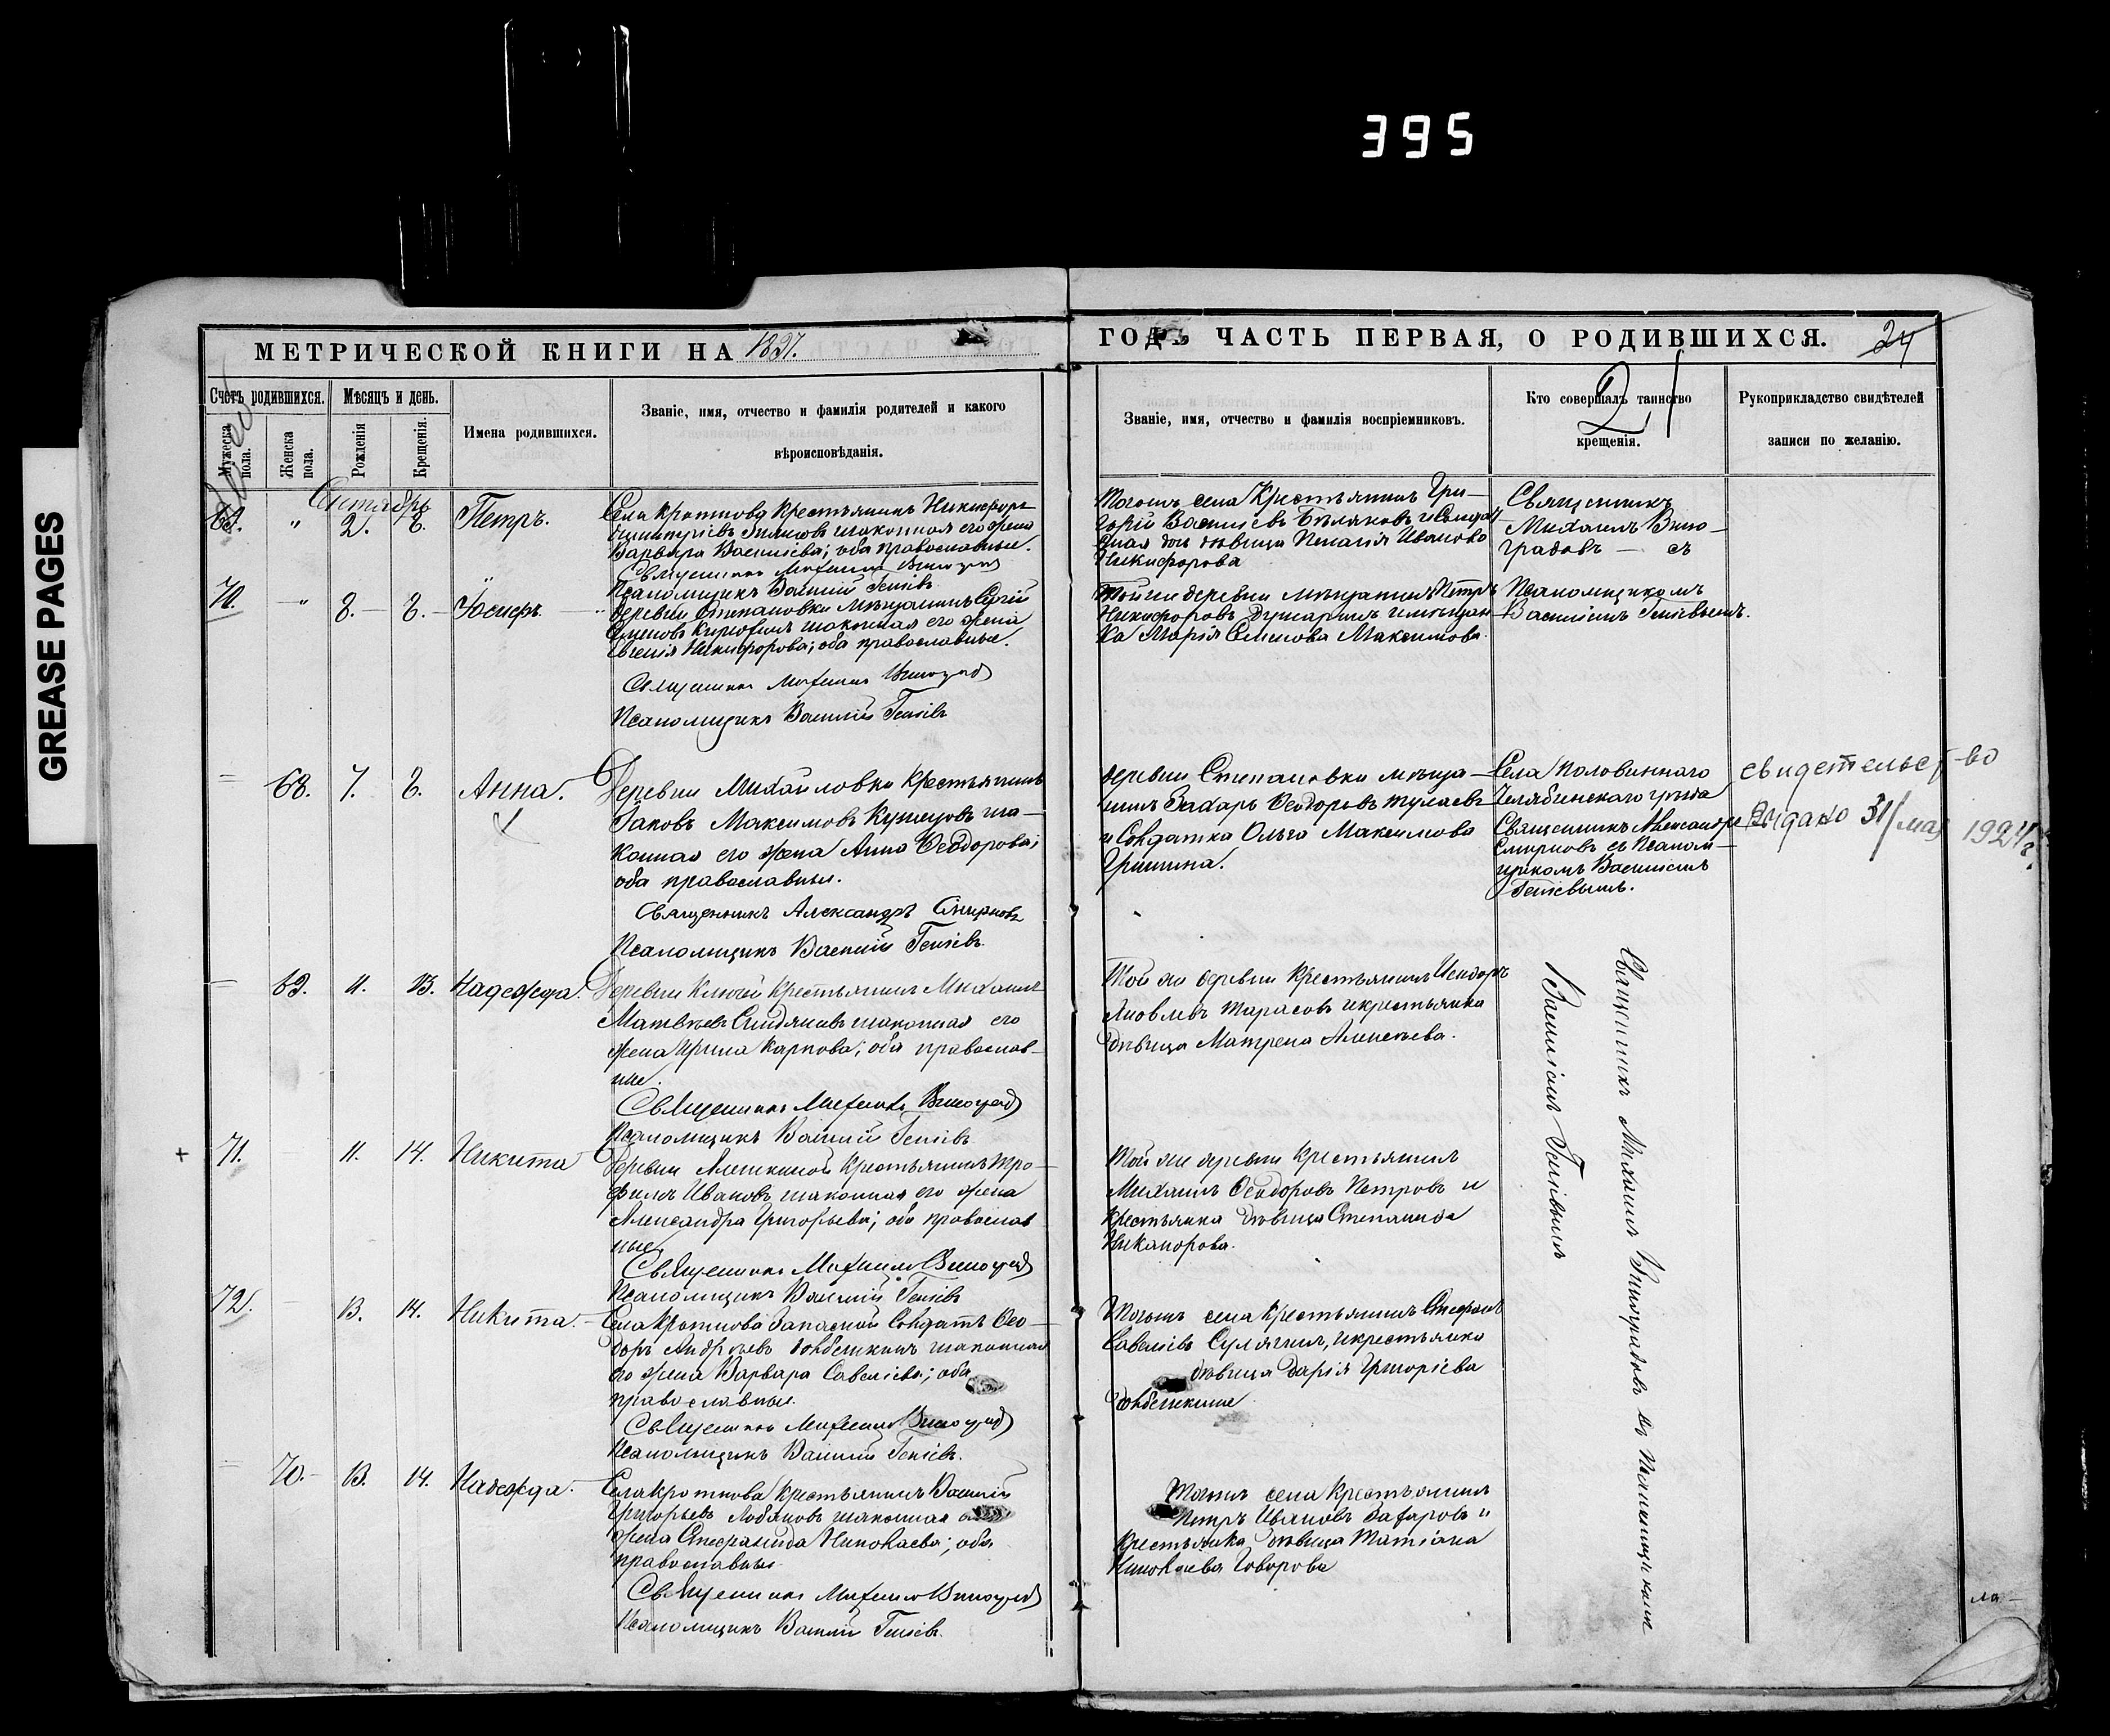 395
GREASE PAGES
МЕТРИЧЕСКОЙ КНИГИ НА 1897.
ГОДЪ ЧАСТЬ ПЕРВАЯ, О РОДИВШИХСЯ. 24
21
Счетъ родившихся.
Мужеска пола.
Женска пола.
Мѣсяцъ и день.
Рожденія
Крещенія.
Имена родившихся.
Званіе, имя, отчество и фамилія родителей и какого
вѣроисповѣданія.
Званіе, имя, отчество и фамилія воспріемниковъ.
Кто совершалъ таинство
крещенія.
Рукоприкладство свидѣтелей
записи по желанію.
69. " 2. 8. Петръ.
Села Кроткова крестьянинъ Никифоръ
законная его жена
Варвара Василіева; оба православные.
Священникъ Михаилъ Виноградо
Псаломщикъ Василій
Тогожъ села крестьянинъ Гри-
горій Василіевъ Бѣляковъ и
дѣвица Пелагія Иванова
Никифорова
Священникъ
Михаилъ Вино-
градовъ — съ
70. " 8. 8. Іосифъ
деревни Степановки мѣщанинъ Сергій
законная его жена
Евгенія Никифорова; оба православные.
Священникъ Михаилъ Виноградо
Псаломщикъ Василій
Той же деревни мѣщанинъ Петръ
Никифоровъ и мѣщан-
ка Марія Семенова Максимова.
Псаломщикомъ
Василіемъ
68. 7. 8. Анна.
Деревни Михайловки крестьянинъ
Іаковъ Максимовъ Кузнецовъ за-
конная его жена Анна Ѳеодорова;
оба православные.
Священникъ Александръ Смирновъ
Псаломщикъ Василій
деревни Степановки мѣща-
нинъ Захаръ Ѳеодоровъ
и Солдатка Ольга Максимова
Гришина.
Села Половиннаго
Челябинскаго уѣзда
Священникъ Александръ
Смирновъ съ Псалом-
щикомъ Василіемъ
свидетельство
выдано 31/мая 1924 г.
69. 11. 13. Надежда.
Деревни Ключей крестьянинъ Михаилъ
Матвѣевъ законная его
жена Ирина Карпова; оба православ-
ные.
Священникъ Михаилъ Виноградо
Псаломщикъ Василій
Той же деревни крестьянинъ Исидоръ
Яковлевъ Тарасовъ и крестьянка
дѣвица Матрена Алексѣева.
+ 71. 11. 14. Никита
Деревни Алешкиной крестьянинъ Тро-
фимъ Ивановъ законная его жена
Александра Григорьева; оба православ
ные.
Священникъ Михаилъ Виноградо
Псаломщикъ Василій
Той же деревни крестьянинъ
Михаилъ Ѳеодоровъ Петровъ и
крестьянка дѣвица Степанида
Никанорова.
72. 13. 14. Никита.
Села Кроткова Запасной Солдатъ Ѳео-
доръ Андреевъ законная
его жена Варвара Савеліева; оба
православные.
Священникъ Михаилъ Виноградо
Псаломщикъ Василій
Тогожъ села крестьянинъ Стефанъ
Савеліевъ и крестьянка
дѣвица Дарія Григоріева
70. 13. 14. Надежда.
Села Кроткова крестьянинъ Василій
Григорьевъ Лобановъ законная его
жена Стефанида Николаева; оба
православные.
Священникъ Михаилъ Виноградо
Псаломщикъ Василій
Тогожъ села крестьянинъ
Петръ Ивановъ Захаровъ и
крестьянка дѣвица Татіана
Николаева Говорова
Священникъ Михаилъ Виноградовъ съ Псаломщикомъ
Василіемъ